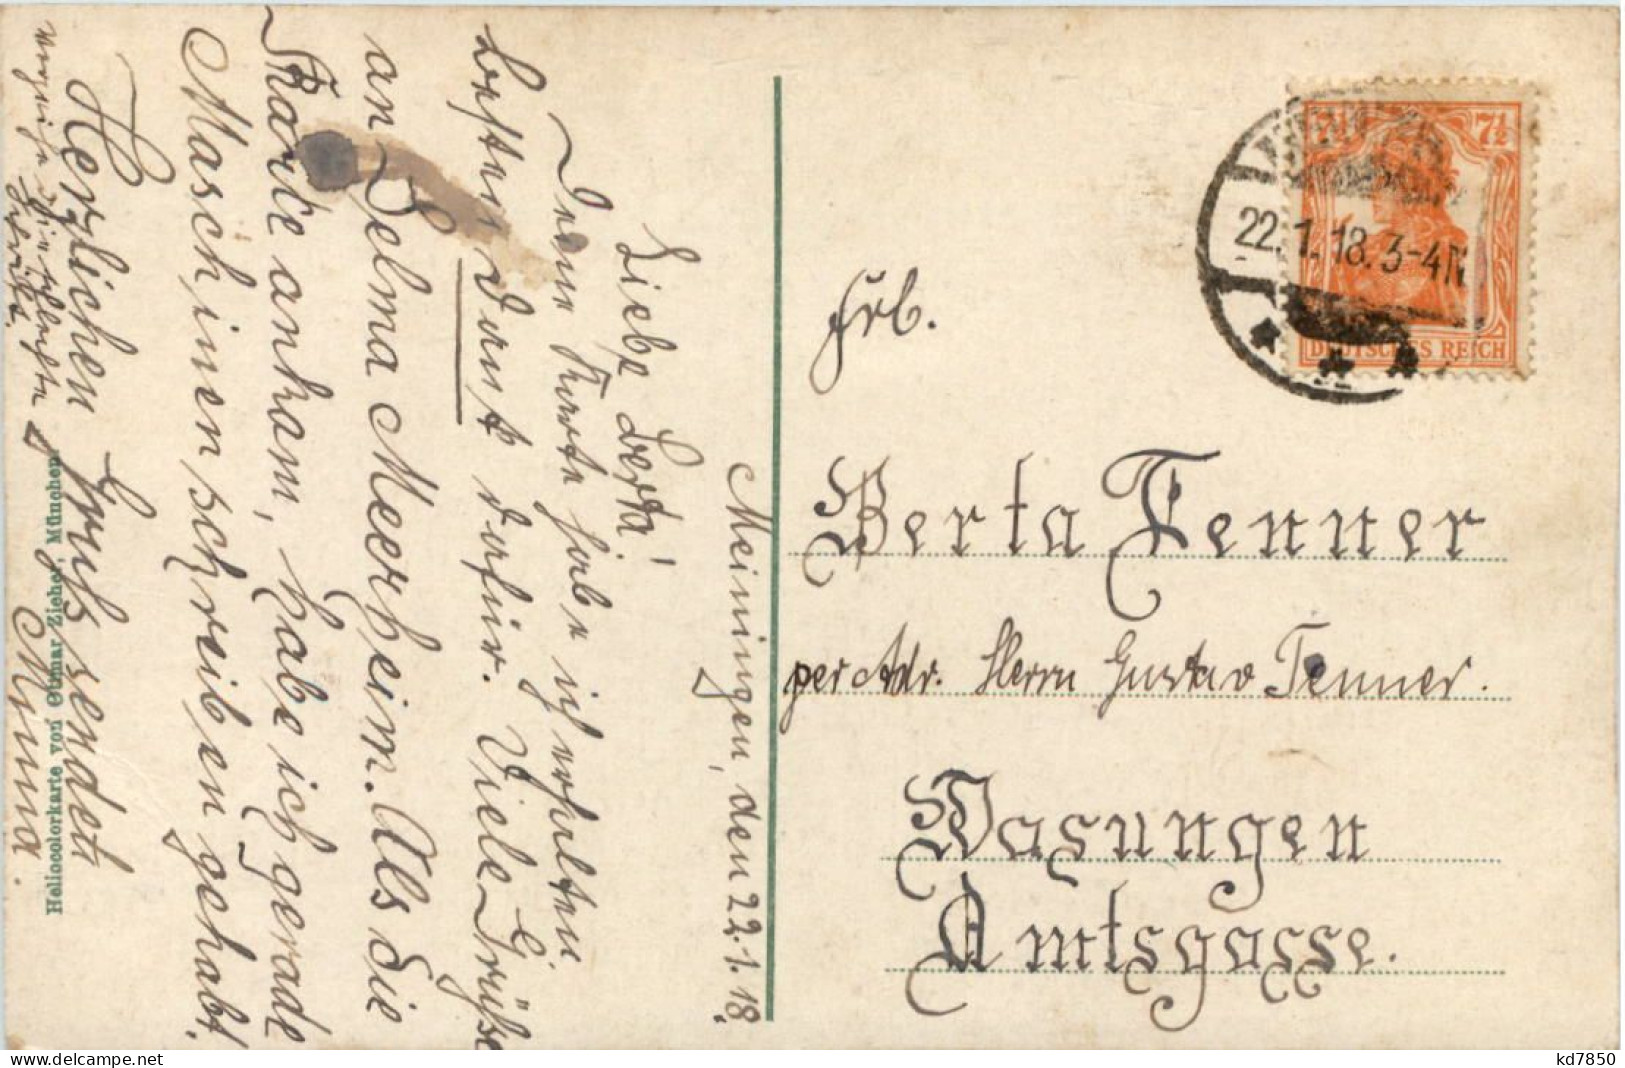 Meiningen, den 22.1.18.
Liebe Berta!
Deine Karte habe ich erhalten.
besten Dank dafür. Viele Grüße
an Selma Meerheim. Als die
Karte ankam, habe ich gerade
Maschinenschreiben gehabt.
Herzlichen Gruß sendet
Minna.
verzeihe die schlechte
Schrift.
Heliocolorkarte von Ottmar Ziehe, München.
7½ 7½
22.1.18.3-4N
DEUTSCHES REICH
Frl.
Berta Tenner
per Adr. Herrn Gustav Tenner.
Wasungen
Amtsgasse.
www.delcampe.net
kd7850